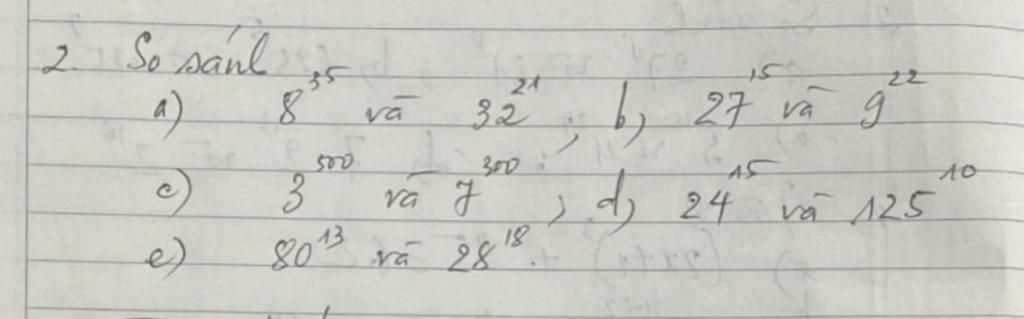 2. So sánh
a) 8^35 và 32^21 ; b, 27^15 và 9^22
c) 3^500 và 7^300 ; d, 24^15 và 125^10
e) 80^13 và 28^18.